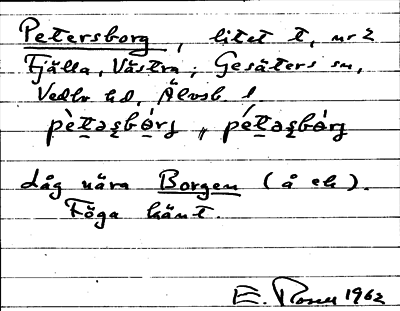 Petersborg, litet t, nr 2
Fjälla, Västra; Gesäters sn,
Vedbo hd, Älvsb. l
pètasbórj „ pétasbórj
Låg nära Borgen (å ek).
Föga känt.
E. Rosen 1962